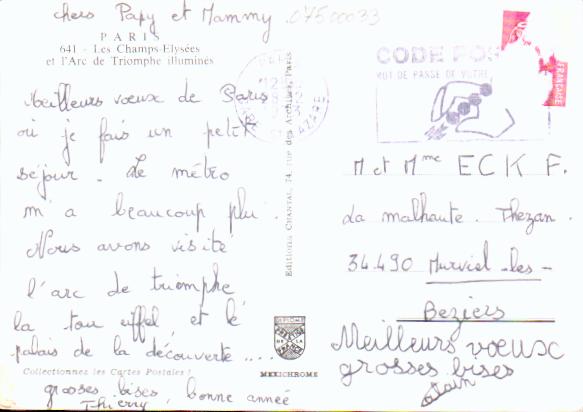 chers Papy et Mammy
07500033
PARIS
641 - Les Champs-Elysées
et l'Arc de Triomphe illuminés
Meilleurs vœux de Paris
où je fais un petit
séjour. Le métro
m'a beaucoup plu.
Nous avons visité
l'arc de triomphe
la tour eiffel, et le
palais de la découverte ....
Collectionnez les Cartes Postales !
grosses bises, bonne année
Thierry
Editions CHANTAL, 74, rue des Archives, Paris
MEXICHROME
CODE POS
MOT DE PASSE DE VOTRE
M et Mme ECK F.
La malhaute. Thezan.
34490 Murviel-les-
Beziers
Meilleurs vœux
grosses bises
Alain